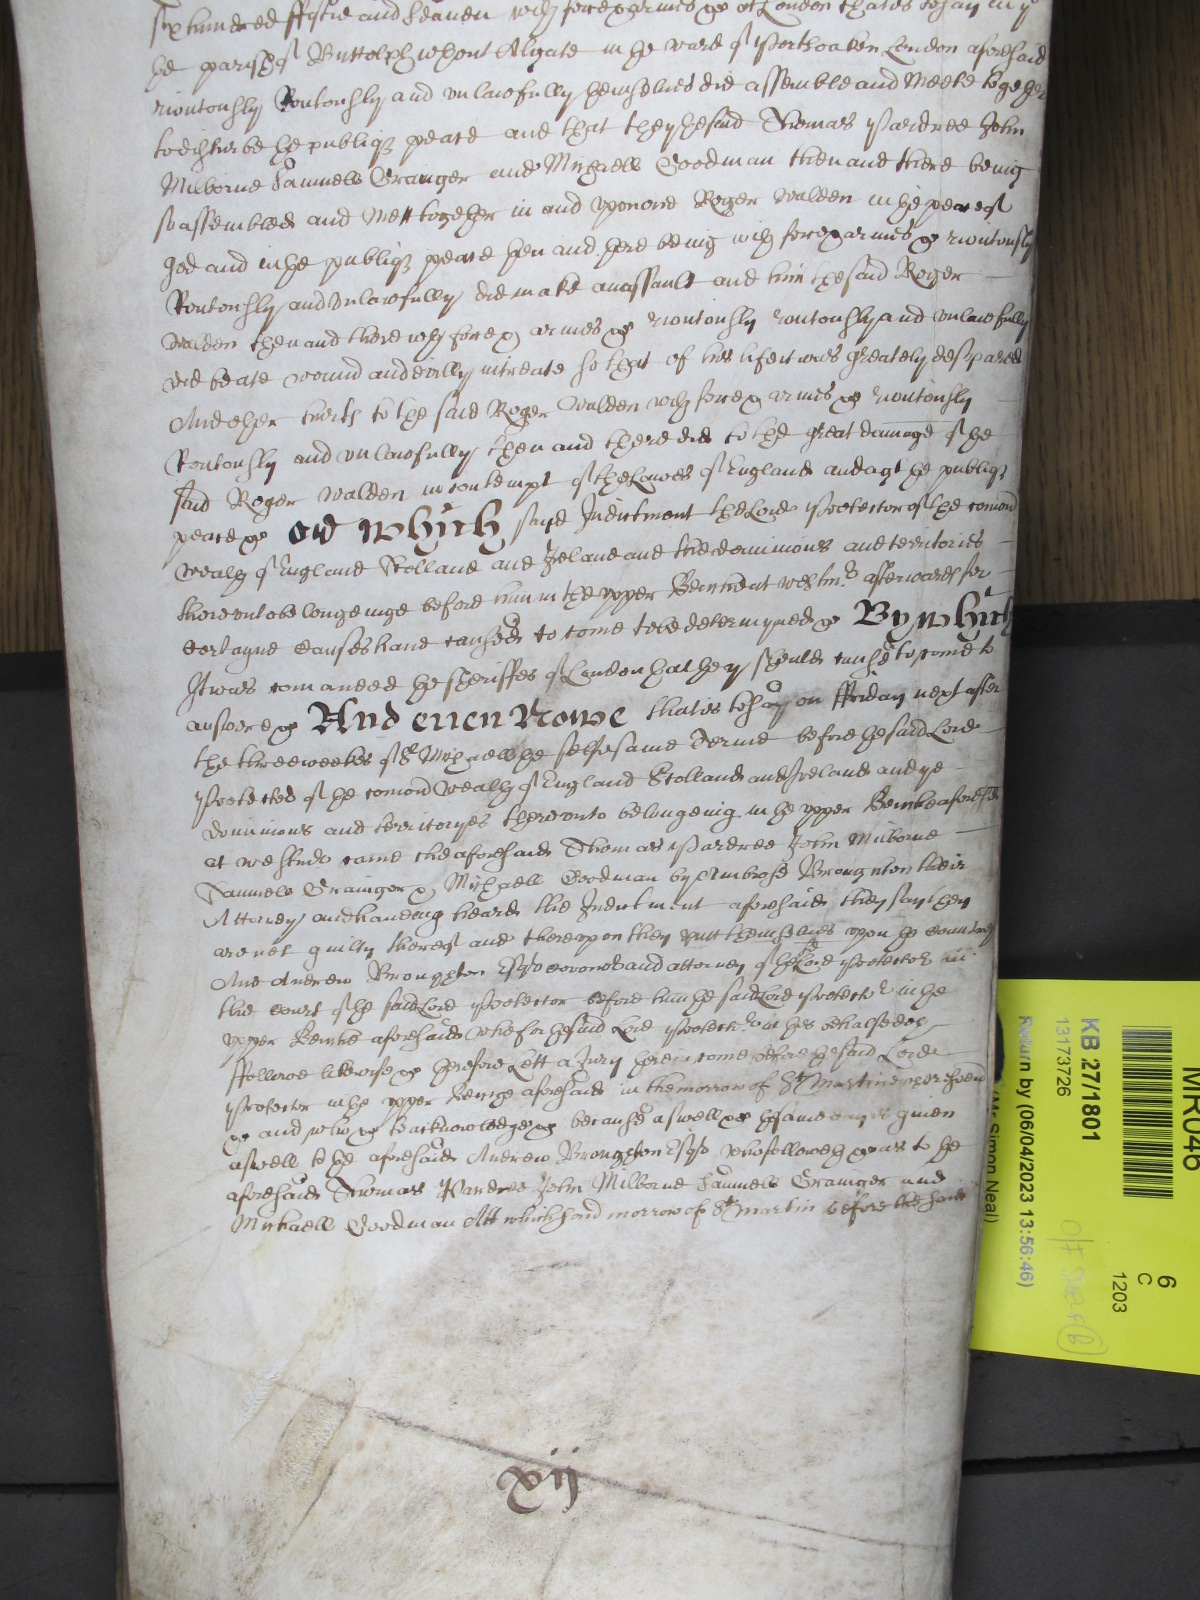 six hundred fiftie and Seaven with force & armes &c at London that is to say in ye
the parish of Buttolph without Algate in the ward of Portsoaken London aforesaid
rioutously Routously and unlawfully themselves did assemble and Meete together
to disturbe the publiqz peace and that they the said Thomas Pardree John
Milborne Samuell Grainger and Michaell Goodman then and there being
so assembled and Mett together in and upon one Roger Walden in the peace of
god and in the publiqz peace then and there being with force & armes &c rioutously
Routously and unlawfully did make an assault and him the said Roger
Walden then and there with force & armes &c rioutously routously and unlawfully
did beate wound and evilly intreate so that of his life it was greately despaired
And other hurts to the said Roger Walden with force & armes &c rioutously
Routously and unlawfully then and there did to the great damage of the
said Roger Walden in contempt of the Lawes of England and agt the publiqz
peace &c Wch which said Indictment the Lord Protector of the comon
wealth of England Scotland and Ireland and the dominions and territories
thereunto belongeinge before him in the upper Bench at westmr afterwards for
certayne causes have caused to come to be determyned &c By which
It was comanded the sheriffes of London that they should cause to come to
answere &c And even Nowe that is to say on ffriday next after
the three weekes of St Michaell the selfe same Terme before the said Lord
Protector of the comon wealth of England Scotland and Ireland and ye
dominions and territoryes thereunto belongeing in the upper Benche aforesaid
at westmr came the aforesaid Thomas Pardree John Milborne
Samuell Grainger & Michaell Goodman by Ambrose Broughton their
Attorney and haveing heard the Indictment aforesaid they say they
are not guilty thereof and thereupon they putt themselves upon the Countrey
And Andrew Broughton Esqr coronor and attorney of the Lord Protector in
the court of the said Lord Protector before him the said Lord Protector in the
upper Benche aforesaid who for the said Lord Protector in this behalfe doth
ffollowe likewise &c therefore Lett a Jury therein come before the said Lord
Protector in the upper Benche aforesaid in the morrow of St Martin wheresoever
&c and who &c to acknowledge &c because aswell &c the same day is given
aswell to the aforesaid Andrew Broughton Esqr who followeth &c as to the
aforesaid Thomas Pardree John Milborne Samuell Grainger and
Michaell Goodman Att which said morrow of St Martin before the said
xij
MR046
KB 27/1801
13173726
Return by (06/04/2023 13:56:46)
Simon Neal)
6
C
1203